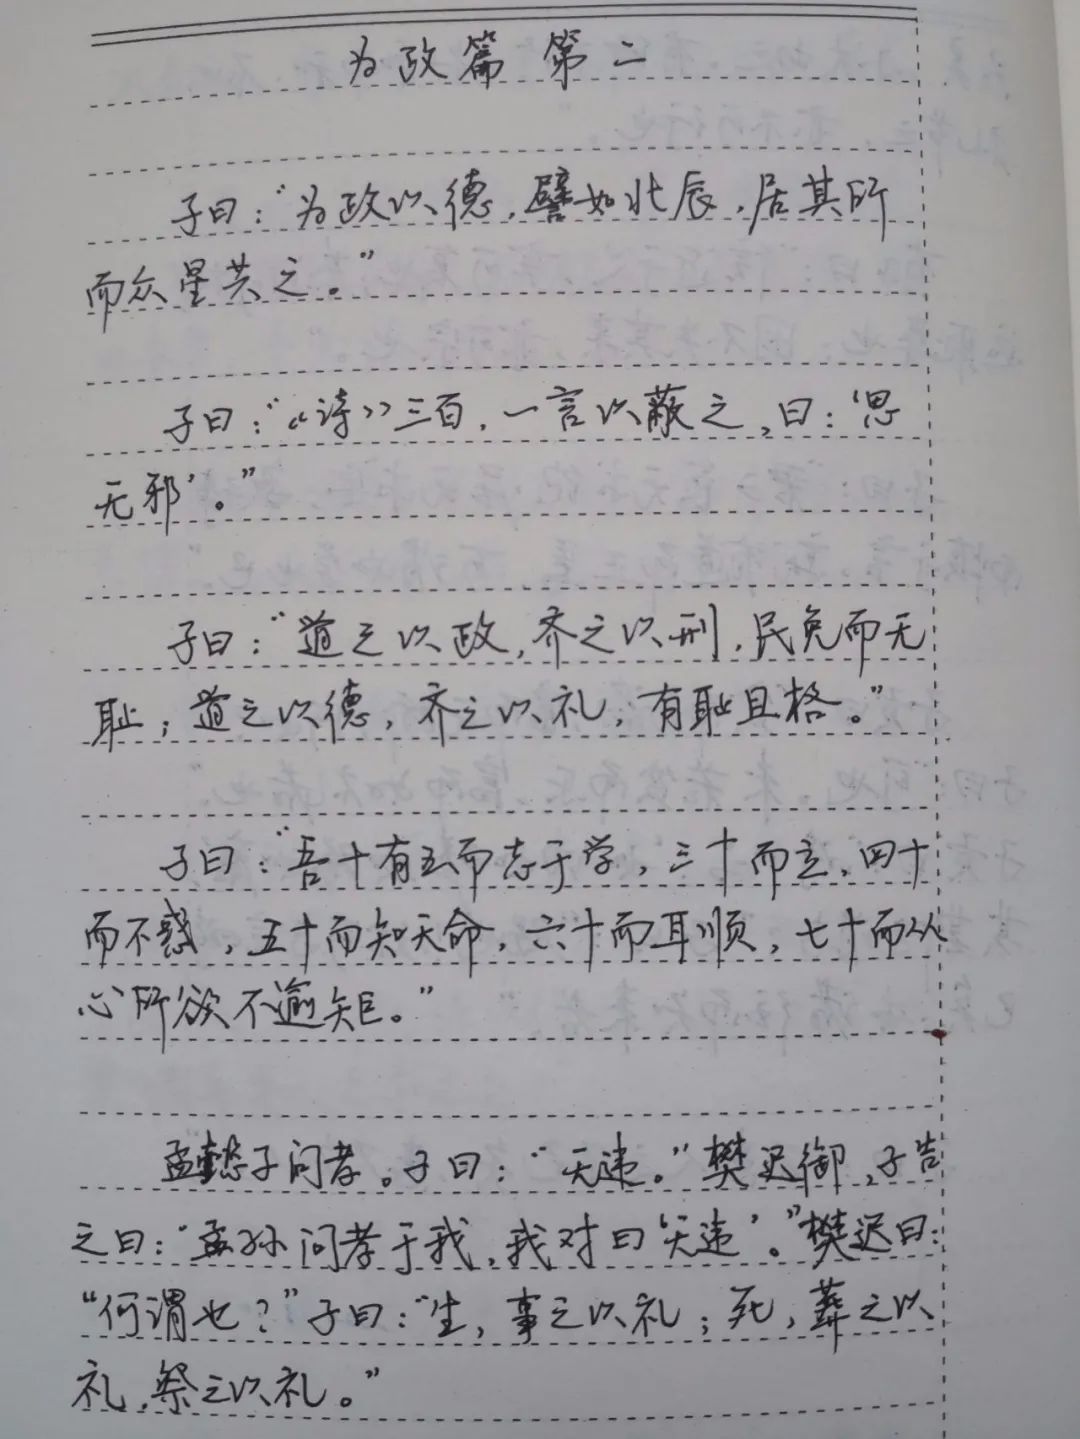 为政篇 第二
子曰：“为政以德，譬如北辰，居其所
而众星共之。”
子曰：“《诗》三百，一言以蔽之，曰：‘思
无邪’。”
子曰：“道之以政，齐之以刑，民免而无
耻；道之以德，齐之以礼，有耻且格。”
子曰：“吾十有五而志于学，三十而立，四十
而不惑，五十而知天命，六十而耳顺，七十而从
心所欲不逾矩。”
孟懿子问孝。子曰：“无违。”樊迟御，子告
之曰：“孟孙问孝于我，我对曰‘无违’。”樊迟曰：
“何谓也？”子曰：“生，事之以礼；死，葬之以
礼，祭之以礼。”